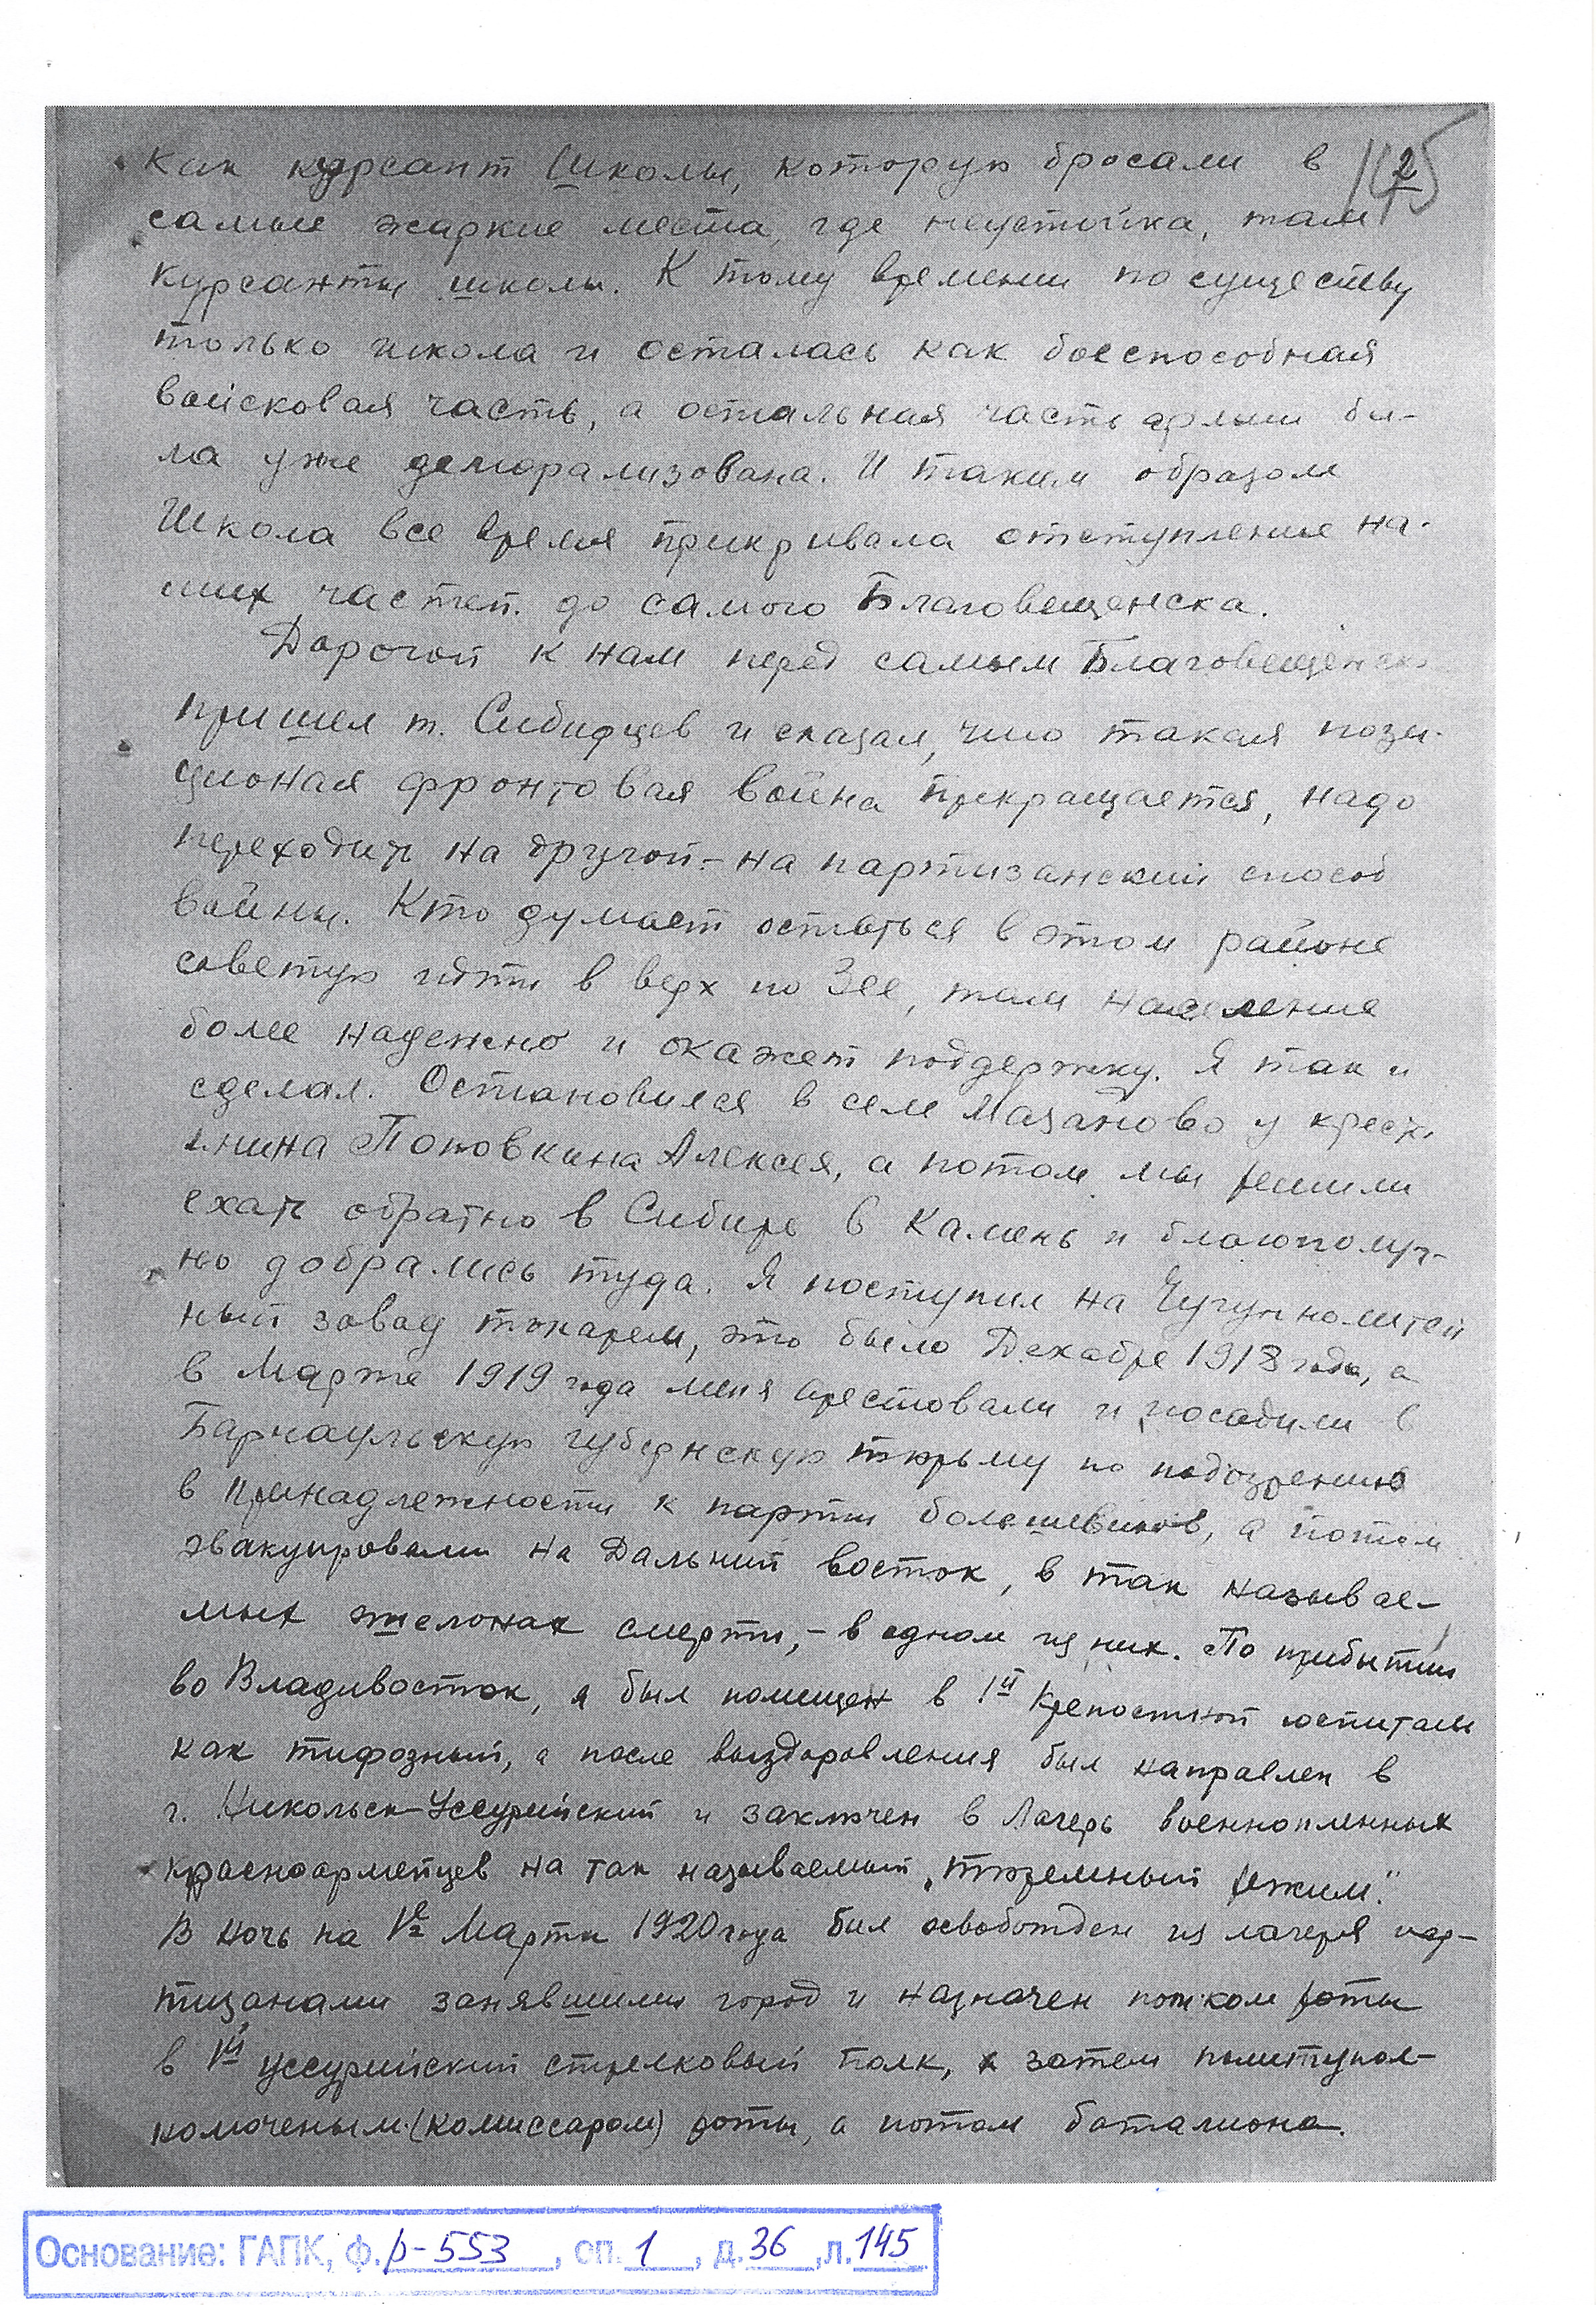 как курсант Школы, которую бросали в
145
2
самые жаркие места, где неустойка, там
курсанты школы. К тому времени по существу
только школа и осталась как боеспособная
войсковая часть, а остальная часть армии бы-
ла уже деморализована. И таким образом
Школа все время прикрывала отступление на-
ших частей до самого Благовещенска.
Дорогой к нам перед самым Благовещенск
пришел т. Сибирцев и сказал, что такая пози-
ционая фронтовая война прекращается, надо
переходить на другой - на партизанский способ
войны. Кто думает остаться в этом районе
советую идти в верх по Зее, там население
более надежно и окажет поддержку. Я так и
сделал. Остановился в селе Мазаново у крест
янина Поповкина Алексея, а потом мы решили
ехать обратно в Сибирь в Камень и благополуч-
но добрались туда. Я поступил на Чугуннолитей
ный завод токарем, это было Декабре 1918 года, а
в Марте 1919 года меня арестовали и посадили в
Барнаульскую губернскую тюрьму по подозрению
в принадлежности к партии большевиков, а потом
эвакуировали на Дальний восток, в так называе-
мых эшелонах смерти, - в одном из них. По прибытии
во Владивосток, я был помещен в 1й Крепостной госпиталь
как тифозный, а после выздоровления был направлен в
г. Никольск-Уссурийский и заключен в Лагерь военнопленных
красноармейцев на так называемый „тюремный режим".
В ночь на 1е Марта 1920 года был освобожден из лагеря пар-
тизанами занявшими город и назначен роты
в 1й уссурийский стрелковый полк, а затем политупол-
комоченым (комиссаром) роты, а потом баталиона.
Основание: ГАПК, ф. р-553, оп. 1, д. 36, л. 145